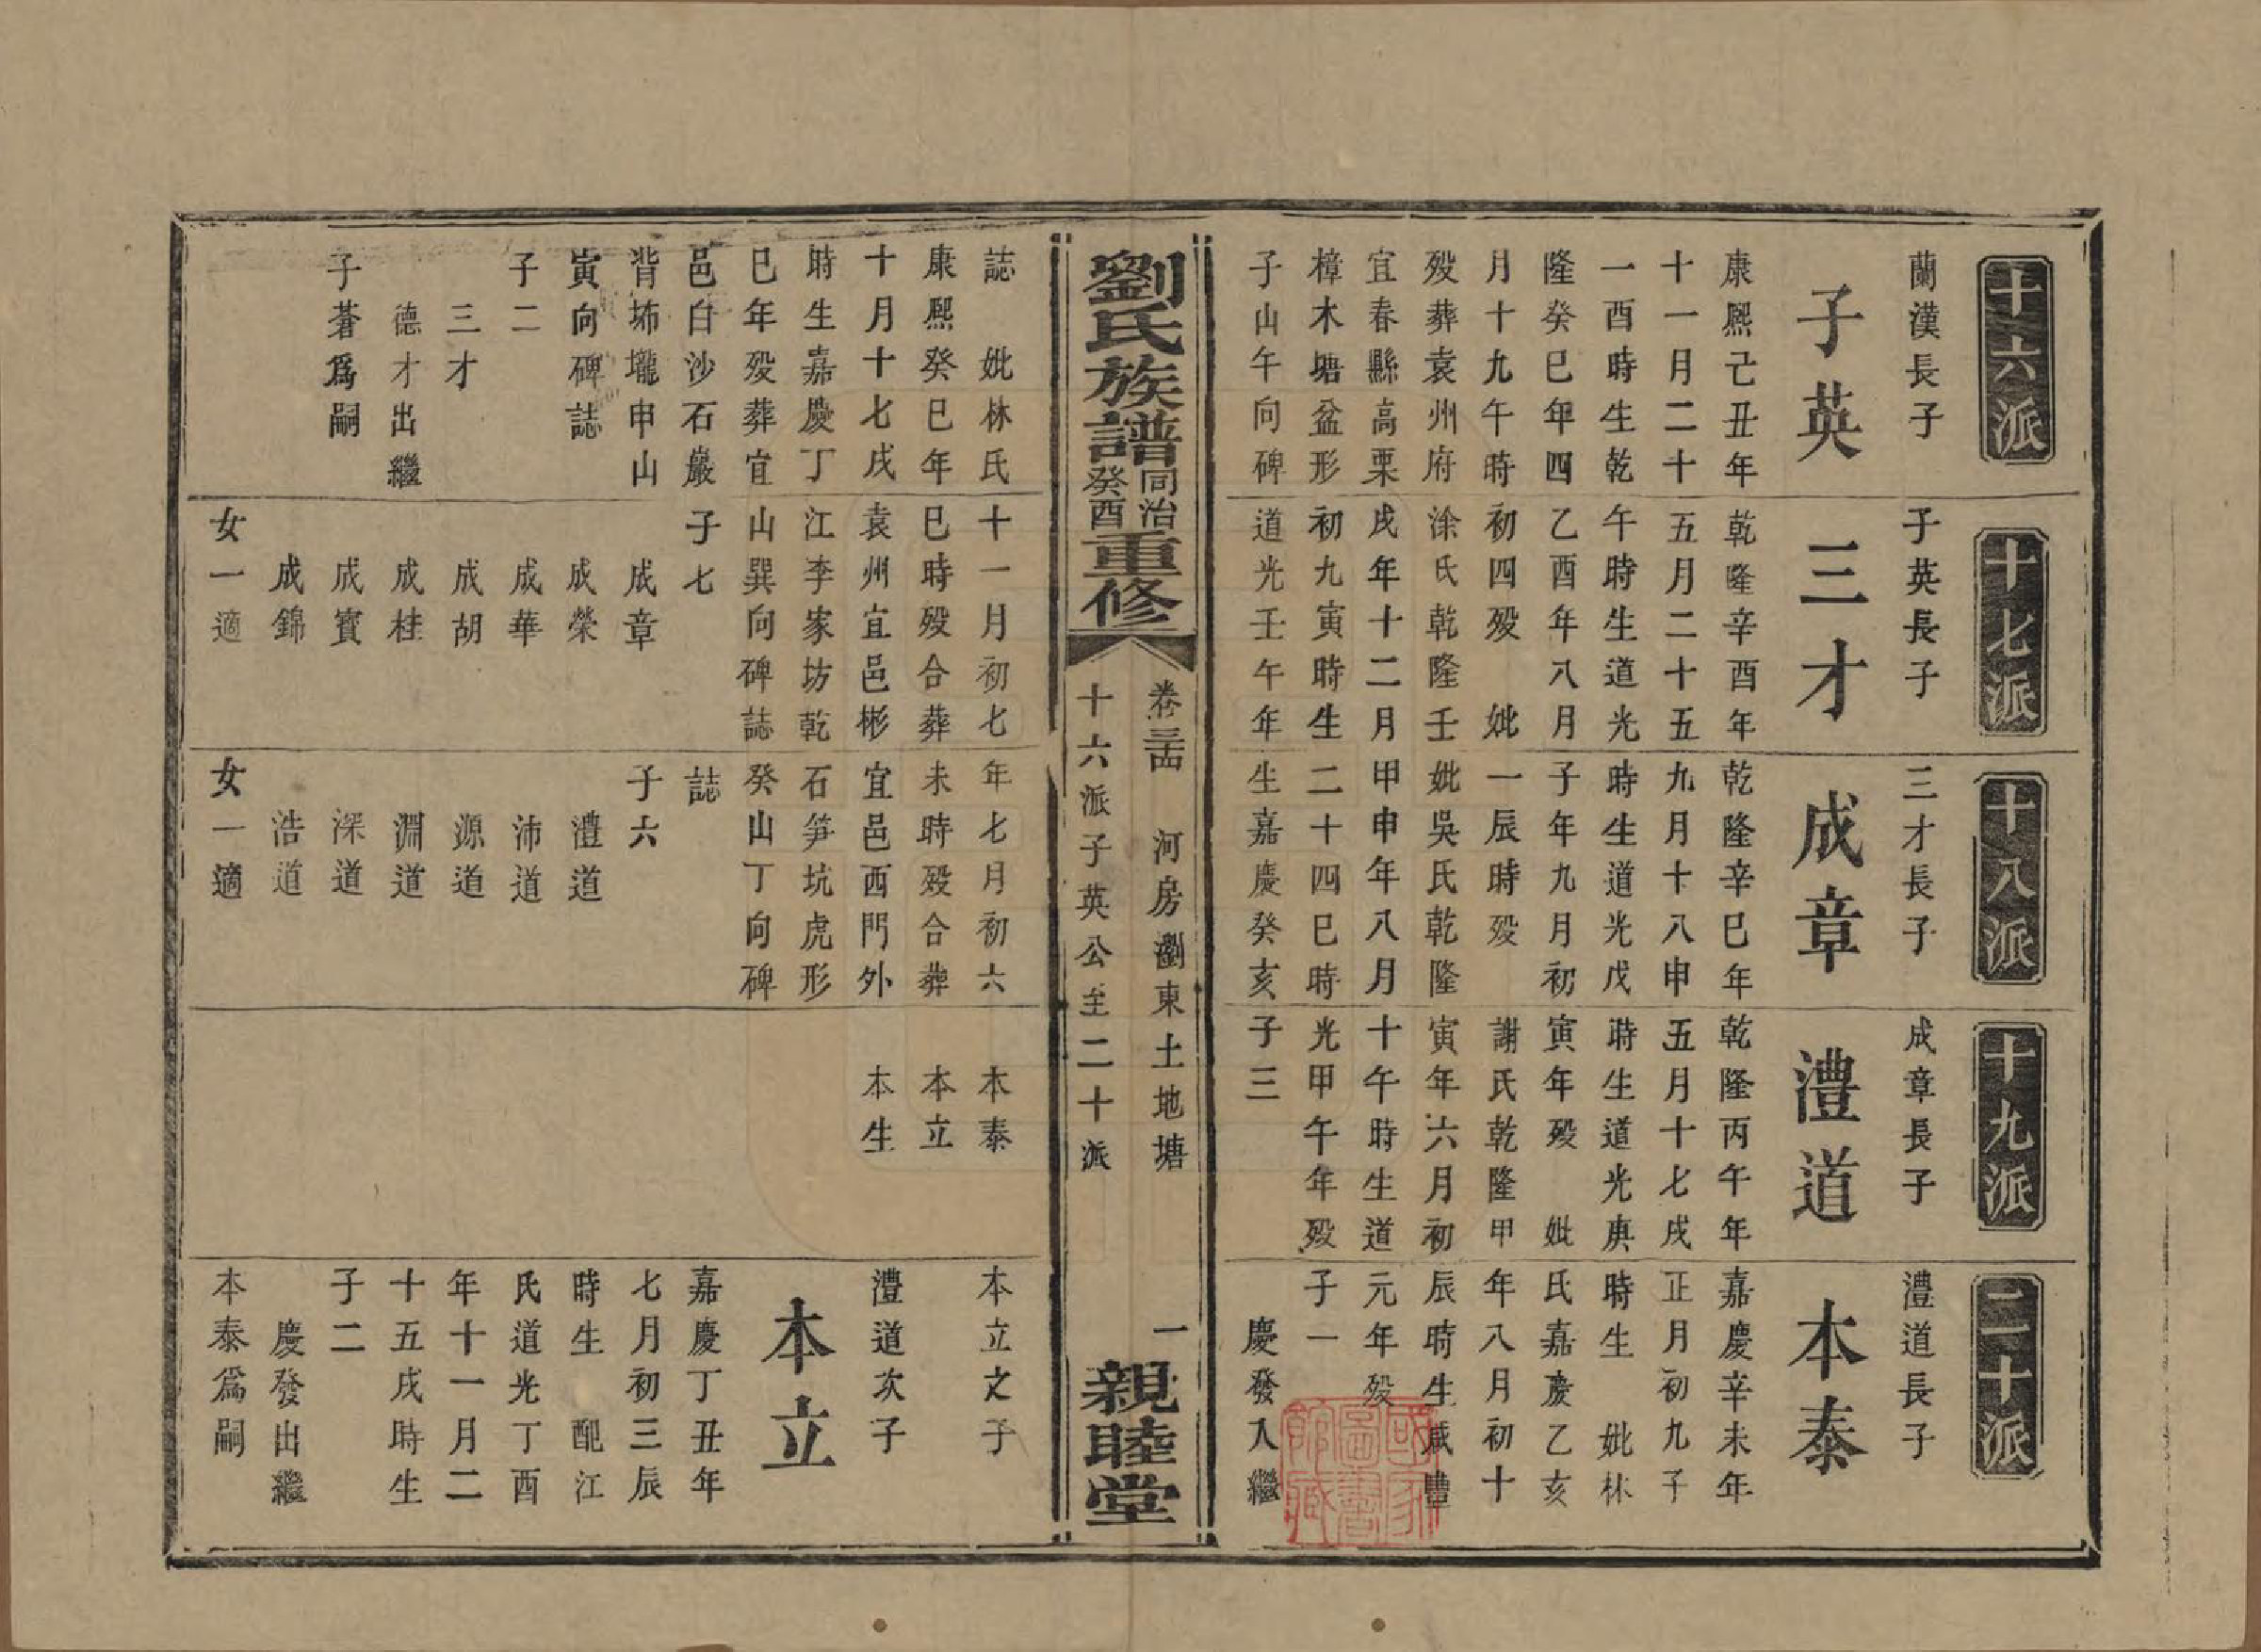 十六派
蘭漢長子
子英
康熙己丑年
十一月二十
一酉時生乾
隆癸巳年四
月十九午時
殁葬袁州府
宜春縣高栗
樟木塘盆形
子山午向碑
十七派
子英長子
三才
乾隆辛酉年
五月二十五
午時生道光
乙酉年八月
初四殁 妣
涂氏乾隆壬
戌年十二月
初九寅時生
道光壬午年
十八派
三才長子
成章
乾隆辛巳年
九月十八申
時生道光戊
子年九月初
一辰時殁
妣吳氏乾隆
甲申年八月
二十四巳時
生嘉慶癸亥
十九派
成章長子
澧道
乾隆丙午年
五月十七戌
時生道光庚
寅年殁 妣
謝氏乾隆甲
寅年六月初
十午時生道
光甲午年殁
子三
二十派
澧道長子
本泰
嘉慶辛未年
正月初九子
時生 妣林
氏嘉慶乙亥
年八月初十
辰時生咸豐
元年殁
子一
慶發入繼
劉氏族譜同治癸酉重修
卷三四 河房瀏東土地塘 一
十六派子英公至二十派
親睦堂
誌 妣林氏
康熙癸巳年
十月十七戌
時生嘉慶丁
巳年殁葬宜
邑白沙石巖
背坳壠申山
寅向碑誌
子二
三才
德才出繼
子蒼爲嗣
十一月初七
巳時殁合葬
袁州宜邑彬
江李家坊乾
山巽向碑誌
子七
成章
成榮
成華
成胡
成桂
成賓
成錦
女一適
年七月初六
未時殁合葬
宜邑西門外
石笋坑虎形
癸山丁向碑
誌
子六
澧道
沛道
源道
淵道
深道
浩道
女一適
本泰
本立
本生
本立之子
澧道次子
本立
嘉慶丁丑年
七月初三辰
時生 配江
氏道光丁酉
年十一月二
十五戌時生
子二
慶發出繼
本泰爲嗣
國家圖書館藏